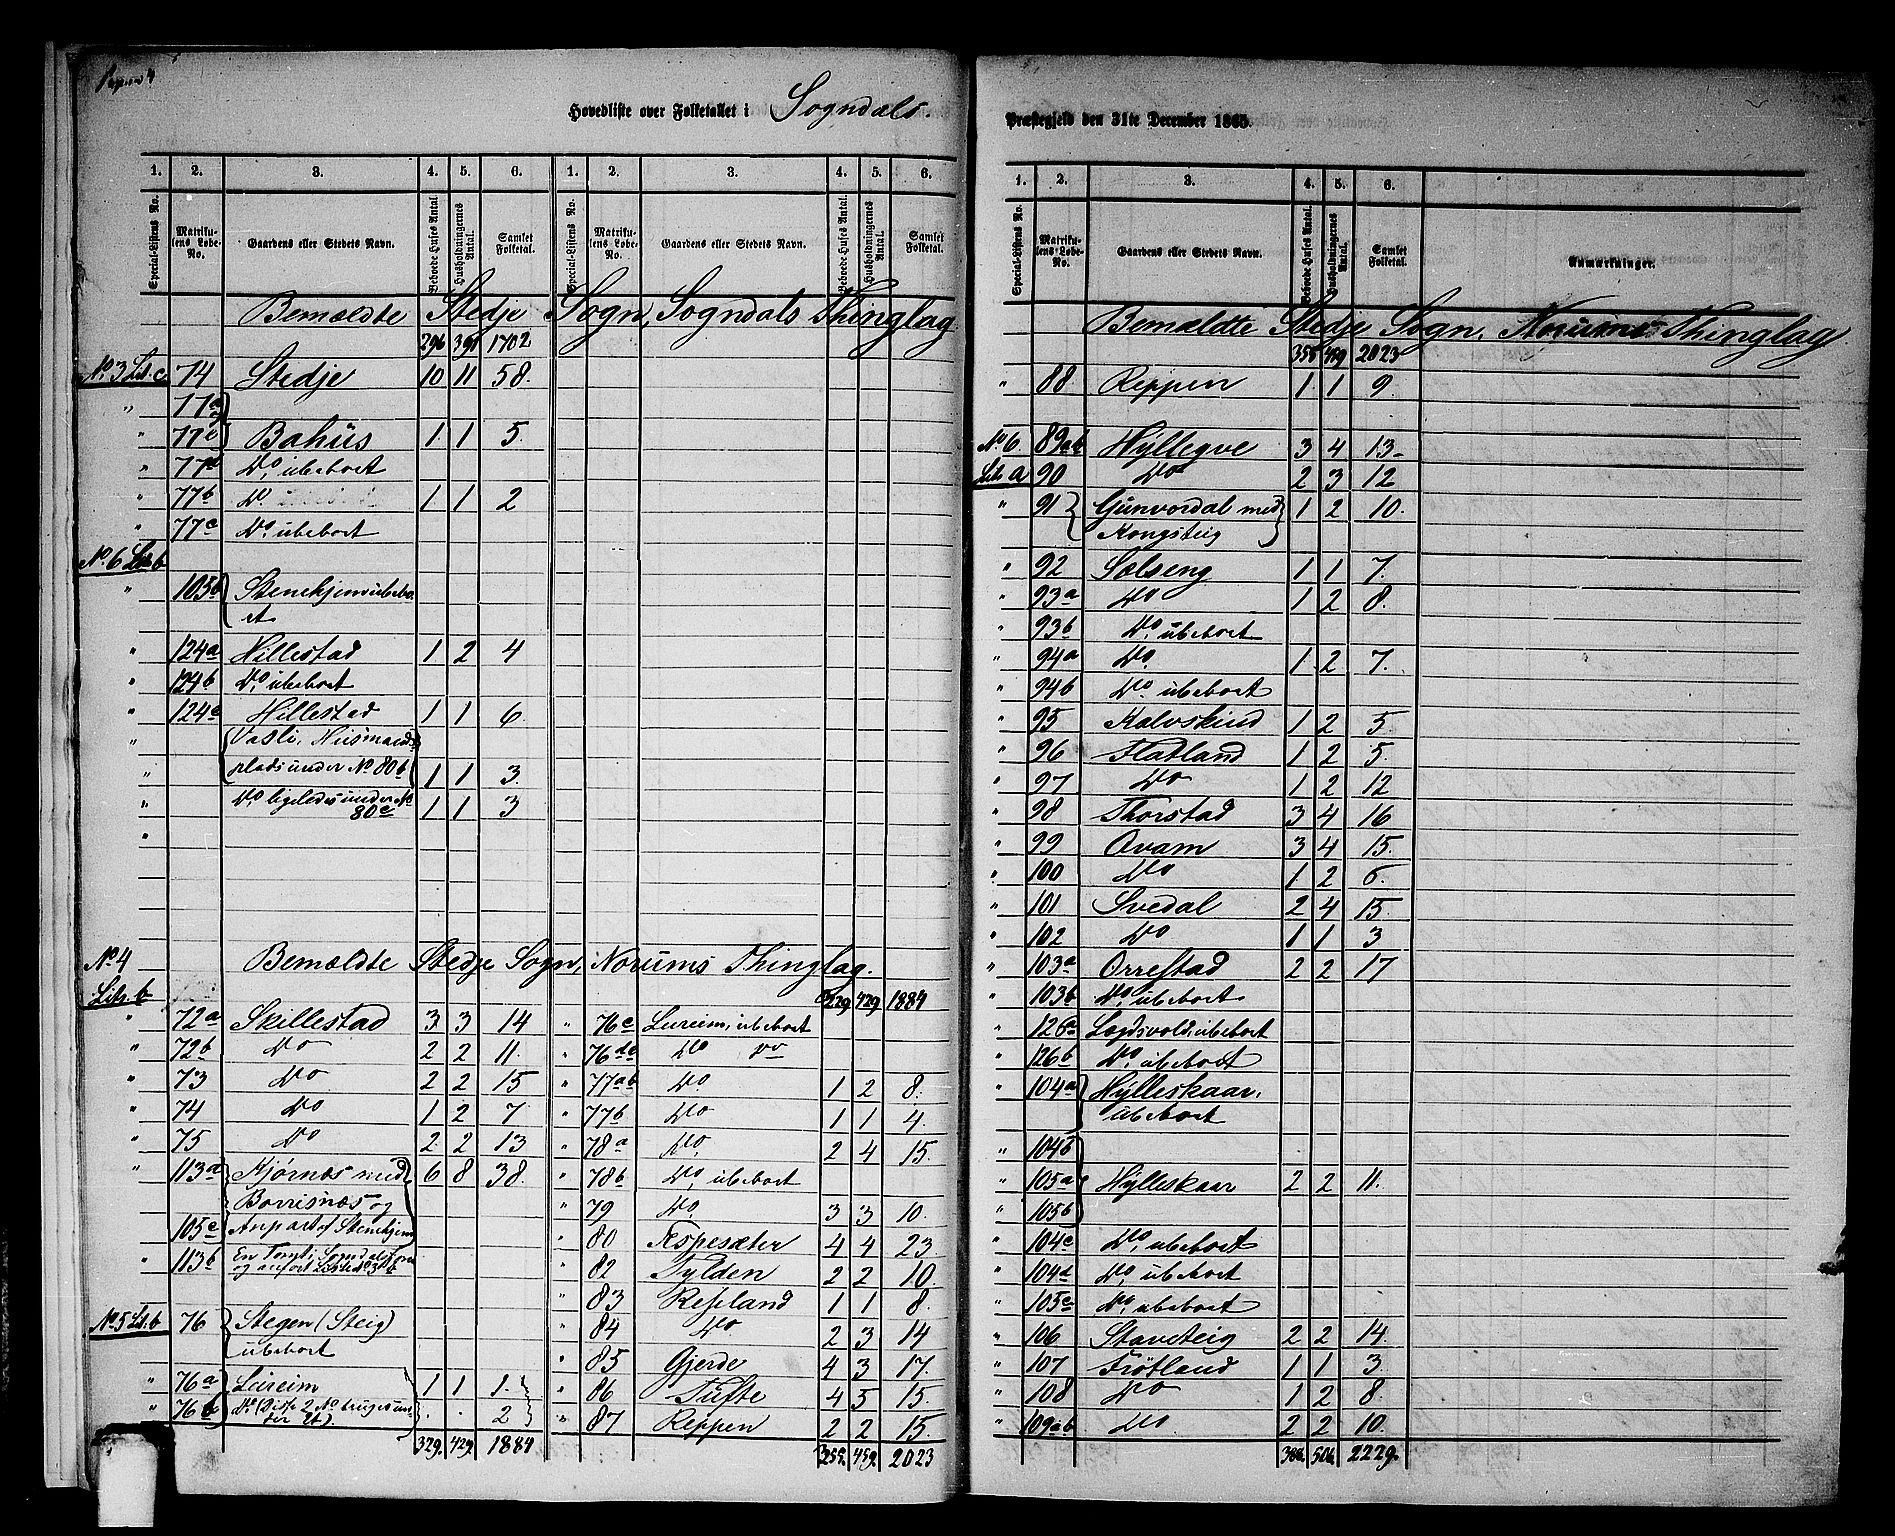 Hovedliste over Folketallet i Sogndals
1. 2. 3. 4. 5. 6. 1. 2. 3. 4. 5. 6.
Special-Listens No. Matrikulens Løbe-No. Gaardens eller Stedets Navn. Beboede Huses Antal. Husholdningernes Antal. Samlet Folketal. Special-Listens No. Matrikulens Løbe-No. Gaardens eller Stedets Navn. Beboede Huses Antal. Husholdningernes Antal. Samlet Folketal.
Bemældte Stedje Sogn, Sogndals Thinglag
296 391 1702.
No. 3 Lit. c 74 Stedje 10 11 58.
" 77a
" 77c Bahüs 1 1 5.
" Do, übeboet
" 77b Do 1 1 2
" 77c Do übeboet
No. 6 Lit. b
" 105b Stenehjem übebo-
et
" 124a Hillestad 1 2 4
" 124b Do, übeboet
" 124c Hillestad 1 1 6
" Vasli, Hüsmands-
" plads under No 80b 1 1 3
" Do ligeledes under No 80c 1 1 3
"
No. 4 Bemældte Stedje Sogn, Norums Thinglag.
Litr. b 329. 429. 1884
" 72a Skillestad 3 3 14 " 76c Leireim, übeboet
" 72b Do 2 2 11. " 76de Do Do
" 73 Do 2 2 15 " 77ab Do. 1 2 8.
" 74 Do 1 2 7 " 77b Do 1 1 4.
" 75 Do 2 2 13 " 78a Do, 2 4 15.
" 113a Kjørnæs med 6 8 38. " 78b Do, übeboet
Borrisnæs og " 79 Do, 3 3 10.
105c Anpart af Stenehjem " 80 Espesæter 4 4 23
" 113b En Tomt i Sogndals " 82 Tylden 2 2 10.
" 83 Repland 1 1 8.
No. 5 Lit. b 76 Stegen (Steig) " 84 Do. 2 3 14
übeboet " 85 Gjerde 4 3 17.
" 76a Leireim 1 1 1. " 86 Tüfte 4 5 15.
" 76b Do. (Disse 2 No. bruges un- . . 2 " 87 Reppen 2 2 15.
der Et)
329. 429. 1884 355. 459. 2023
Præstegjeld den 31te December 1865.
1. 2. 3. 4. 5. 6.
Special-Listens No. Matrikulens Løbe-No. Gaardens eller Stedets Navn. Beboede Huses Antal. Husholdningernes Antal. Samlet Folketal. Anmærkninger.
Bemældte Stedje Sogn, Norums Thinglag
355 459 2023
" 88 Reppen 1 1 9.
No. 6 89ab Hyllegve 3 4 13.
Lit. a 90 Do 2 3 12
" 91 Gunvordal med 1 2 10.
Kongsteig
" 92 Sølseng 1 1 7.
" 93a Do 1 2 8.
" 93b Do, übeboet
" 94a Do. 1 2 7.
" 94b Do. übeboet
" 95 Kalvskind 1 2 5
" 96 Flatland 1 2 5.
" 97 Do 1 2 12
" 98 Thorstad 3 4 16
" 99 Qvam 3 4 15.
" 100 Do 1 2 6.
" 101 Svedal 2 4 15.
" 102 Do 1 1 3
" 103a Orrestad 2 2 17
" 103b Do, übeboet
" 126a Lægdsvold, übeboet
" 126b Do, übeboet
" 104a Hylleskaar,
übeboet
" 104b
" 105a Hylleskaar 2 2 11.
" 105b
" 104c Do, übeboet
" 104d Do, übeboet
" 105c Do, übeboet
" 106 Stavsteig 2 2 14.
" 107 Frötland 1 1 3.
" 108 Do 1 2 8.
" 109ab Do 2 2 10.
386. 506. 2229.